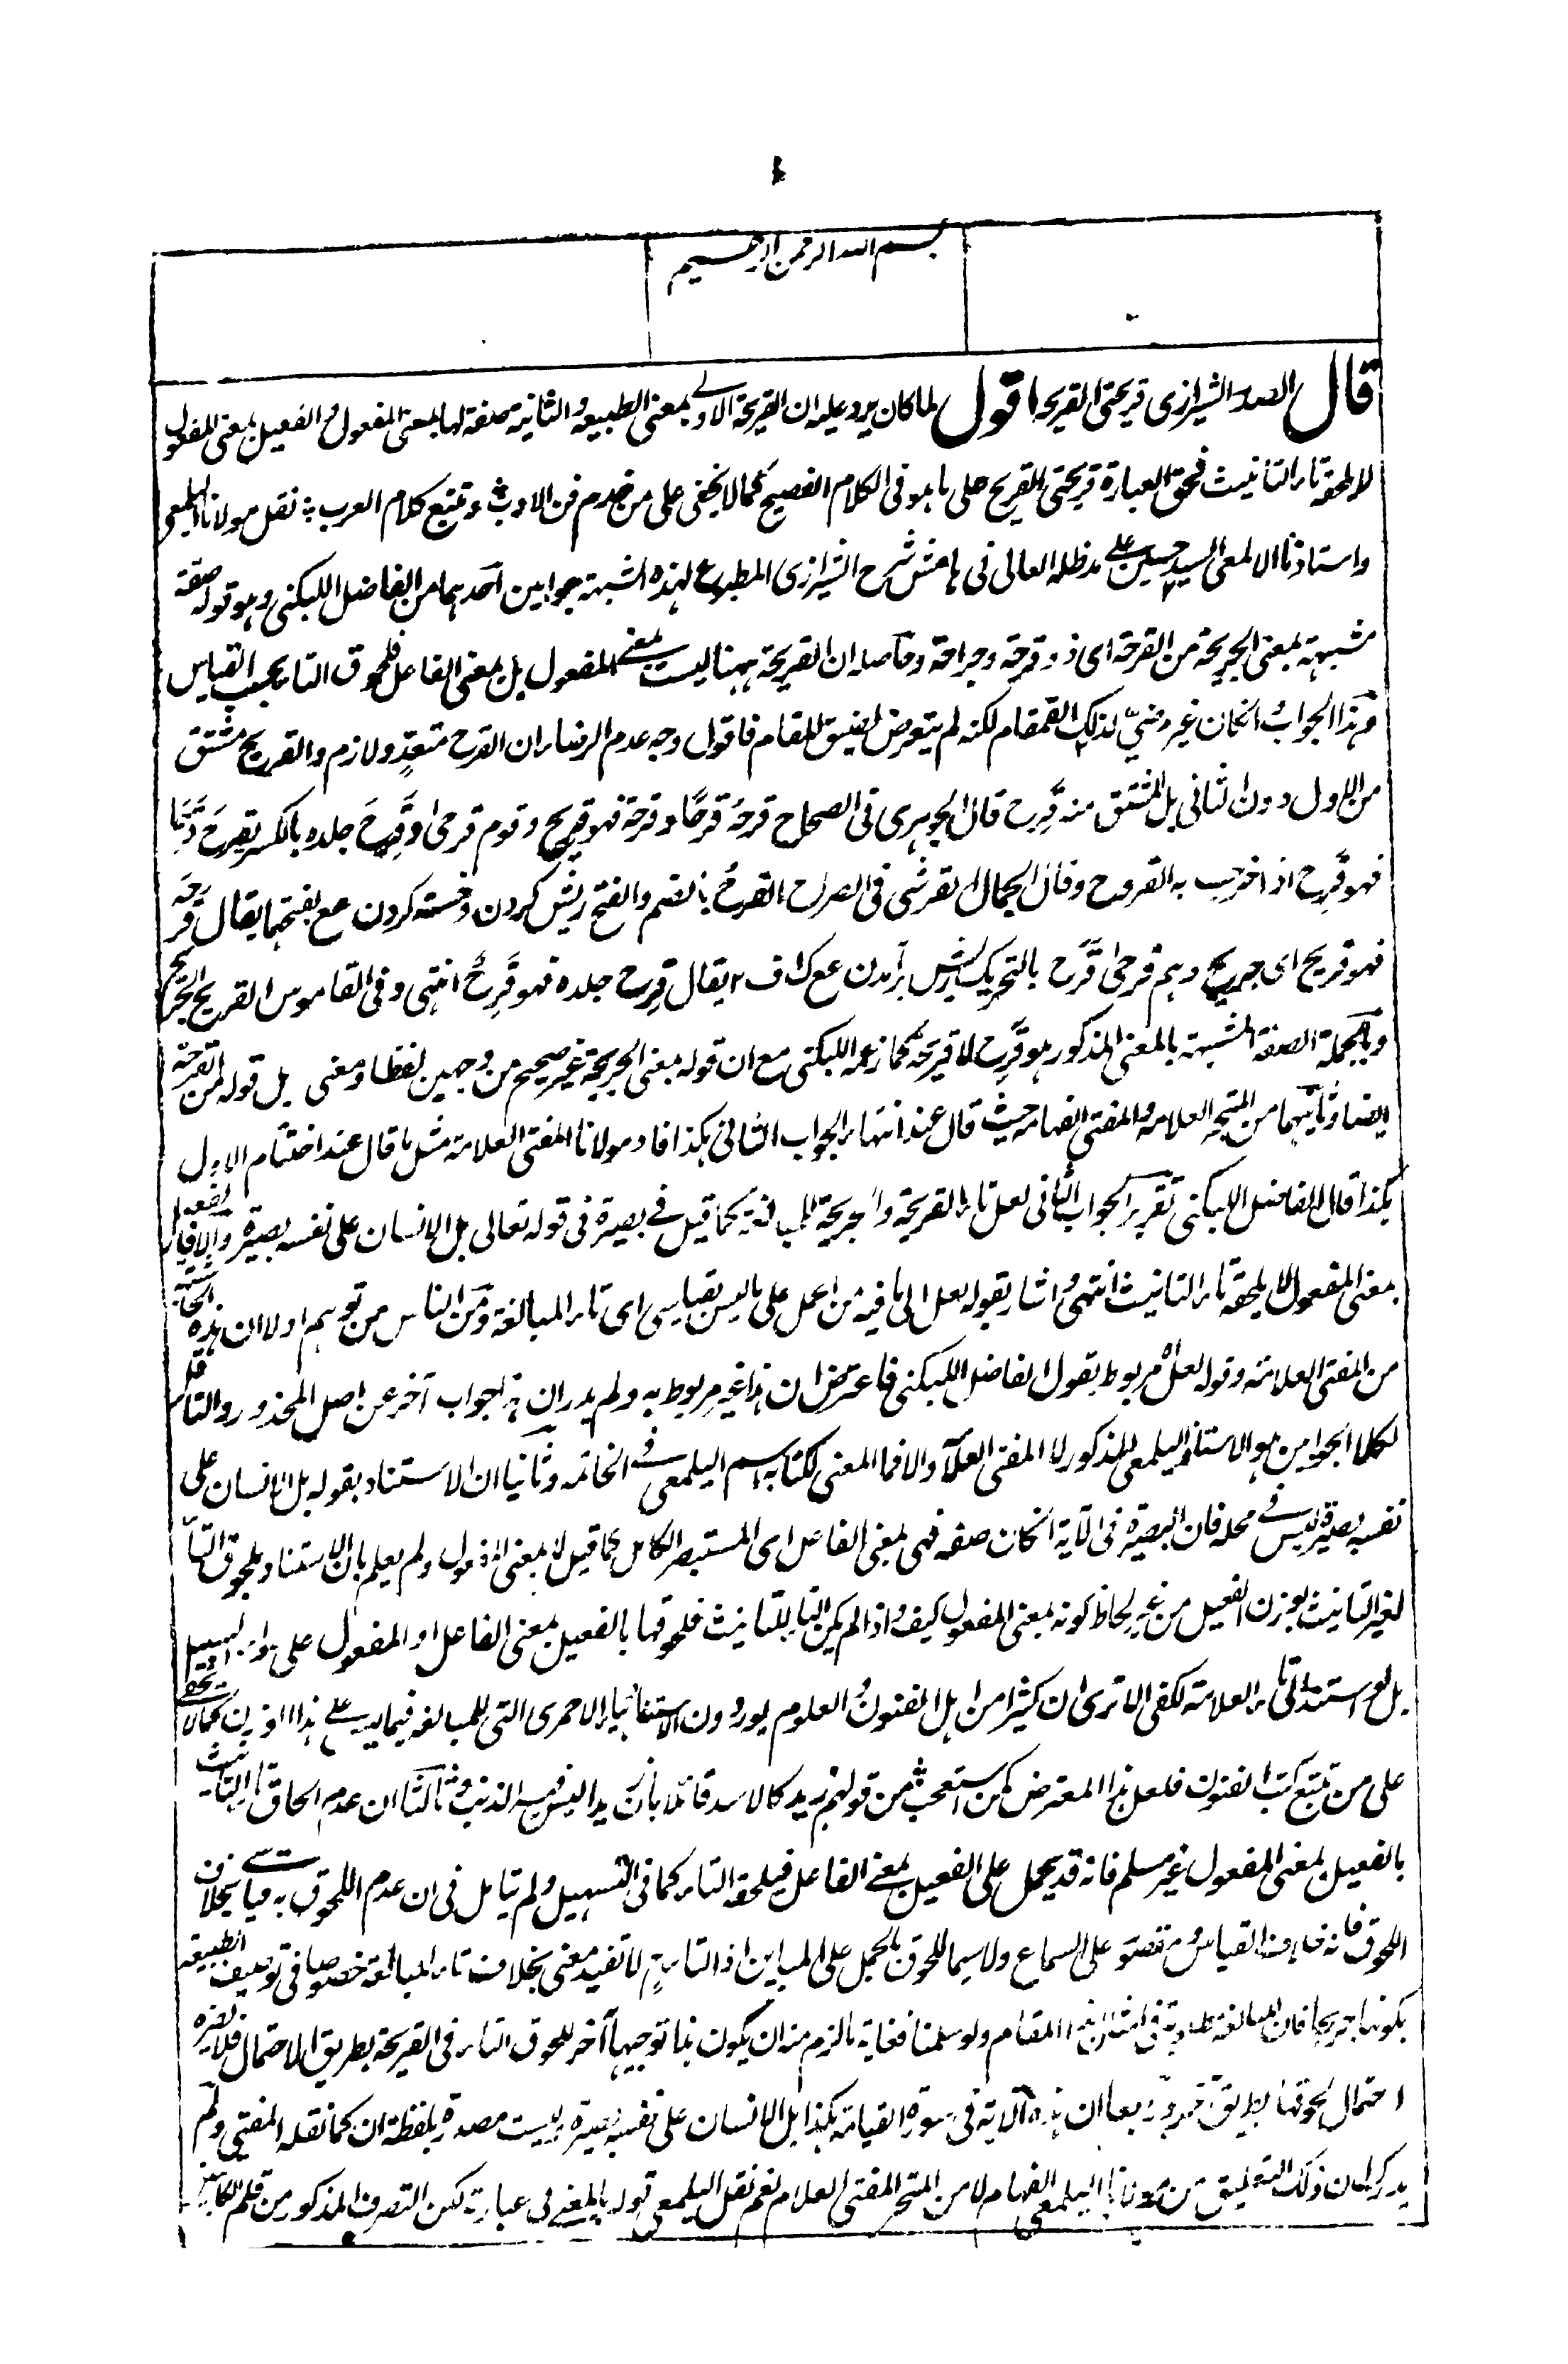 بسم الله الرحمن الرحيم
قال الصدر الشيرازى قريحتى القريحة اقول لما كان يرد عليه ان القريحة الاولى بمعنى الطبيعة والثانية صفة لها بمعنى المفعول والفعيل بمعنى المفعول
لا يلحقه تاء التانيث فحق العبارة قريحتى القريح على ما هو فى الكلام الفصيح كما لا يخفى على من خدم فن الادب وتتبع كلام العرب نقل مولانا اليلمعى
واستاذنا الالمعى السيد حسين على مدظله العالى فى هامش شرح الشيرازى المطبوع لهذه الشبهة جوابين احدهما من الفاضل اللبكنى وهو قوله صفة
مشبهة بمعنى الجريحة من القرحة اى ذو قرحة وجراحة وحاصله ان القريحة ههنا ليست بمعنى المفعول بل بمعنى الفاعل فلحوق التاء بحسب القياس
وهذا الجواب انكان غير مرضىّ لذلك القمقام لكنه لم يتعرض لضيق المقام فاقول وجه عدم الرضاء ان القرح متعدٍّ ولازم والقريح مشتق
من الاول دون الثانى بل المشتق منه قَرِح قال الجوهرى فى الصحاح قرحه قرحًا وقرحة فهو قريح وقوم قرحى وقَرِحَ جلده بالكسر يقرح قرحًا
فهو قَرِح اذا خرجت به القروح وقال الجمال القرشى فى الصراح القرح بالضم والفتح ريش كردن وخسته كردن مع بفتحهما يقال قرحه
فهو قريح اى جريح وهم قرحى قَرَح بالتحريك ريش برآمدن مع ك ف ٢ يقال قرح جلده فهو قَرِحٌ انتهى وفى القاموس القريح الجريح
وبالجملة الصفة المشبهة بالمعنى المذكور هو قَرِح لا قريحة كما زعمه اللبكنى مع ان قوله بمعنى الجريحة غير صحيح من وجهين لفظا ومعنى بل قوله من القرحة
ايضا وثانيهما من المتبحر العلامة والمفتى الفهامة حيث قال عند انتهاء الجواب الثانى هكذا افاد مولانا المفتى العلامة مثل ما قال عند اختتام الاول
هكذا قال الفاضل اللبكنى تقرير الجواب الثانى لعل تاء القريحة والجريحة للمبالغة كما قيل فى بصيرة فى قوله تعالى بل الانسان على نفسه بصيرة والا فالفعيل
بمعنى المفعول لا يلحقه تاء التانيث انتهى واشار بقوله لعل الى ما فيه من الحمل على ما ليس بقياسى اى تاء المبالغة ومن الناس من توهم اولا ان هذه الحاشية
من المفتى العلامة وقوله لعل اه مربوط بقول الفاضل اللبكنى فاعترض ان هذا غير مربوط به ولم يدر ان هذا جواب آخر عن اصل المحذور والناقل
لكلا الجوابين هو الاستاذ اليلمعى المذكور لا المفتى العلامة والا فما المعنى لكتابة اسم اليلمعى فى الخاتمة وثانيا ان الاستناد بقوله بل الانسان على
نفسه بصيرة ليس فى محله فان البصيرة فى الآية انكان صفة فهى بمعنى الفاعل اى المستبصر الكامل كما قيل لا بمعنى المفعول ولم يعلم بان الاستناد بلحوق التاء
لغير التانيث بوزن الفعيل من غير لحاظ كونه بمعنى المفعول كيف واذا لم يكن التاء للتانيث فلحوقها بالفعيل بمعنى الفاعل او المفعول على سواء السبيل
بل لو استند الى تاء العلامة لكفى الا ترى ان كثيرا من اهل الفنون والعلوم يوردون الاستناد بياء الاحمرى التى للمبالغة فيما ليس على هذا الوزن كما لا يخفى
على من تتبع كتب الفنون فلعل هذا المعترض كمن استعجب من قولهم زيد كالاسد قائلا بأن زيدا ليس فيه الذنب وثالثا ان عدم الحاق تاء التانيث
بالفعيل بمعنى المفعول غير مسلم فانه قد يحمل على الفعيل بمعنى الفاعل فيلحقه التاء كما فى التسهيل ولم يتامل فى ان عدم اللحوق به قياسى بخلاف
اللحوق فانه خلاف القياس ومقصور على السماع ولا سيما للحوق بالحمل على المباين اذ التاء لا تفيد معنى بخلاف تاء المبالغة خصوصا فى توصيف الطبيعة
بكونها جريحا فان المبالغة مطلوبة فى امثال هذا المقام ولو سلمنا فغاية ما لزم منه ان يكون هذا توجيها آخر للحوق التاء فى القريحة بطريق الاحتمال فلا يضره
احتمال لحوقها بطريق آخر ورابعا ان هذه الآية فى سورة القيامة هكذا بل الانسان على نفسه بصيرة ليست مصدرة بلفظة ان كما نقله المفتى ولم
يدرك ان ذلك التعليق من مولانا اليلمعى الفهام لا من المتبحر المفتى العلام نعم نقل اليلمعى قوله بالمعنى فى عبارته لكن التصرف المذكور من قلم الكاتبين